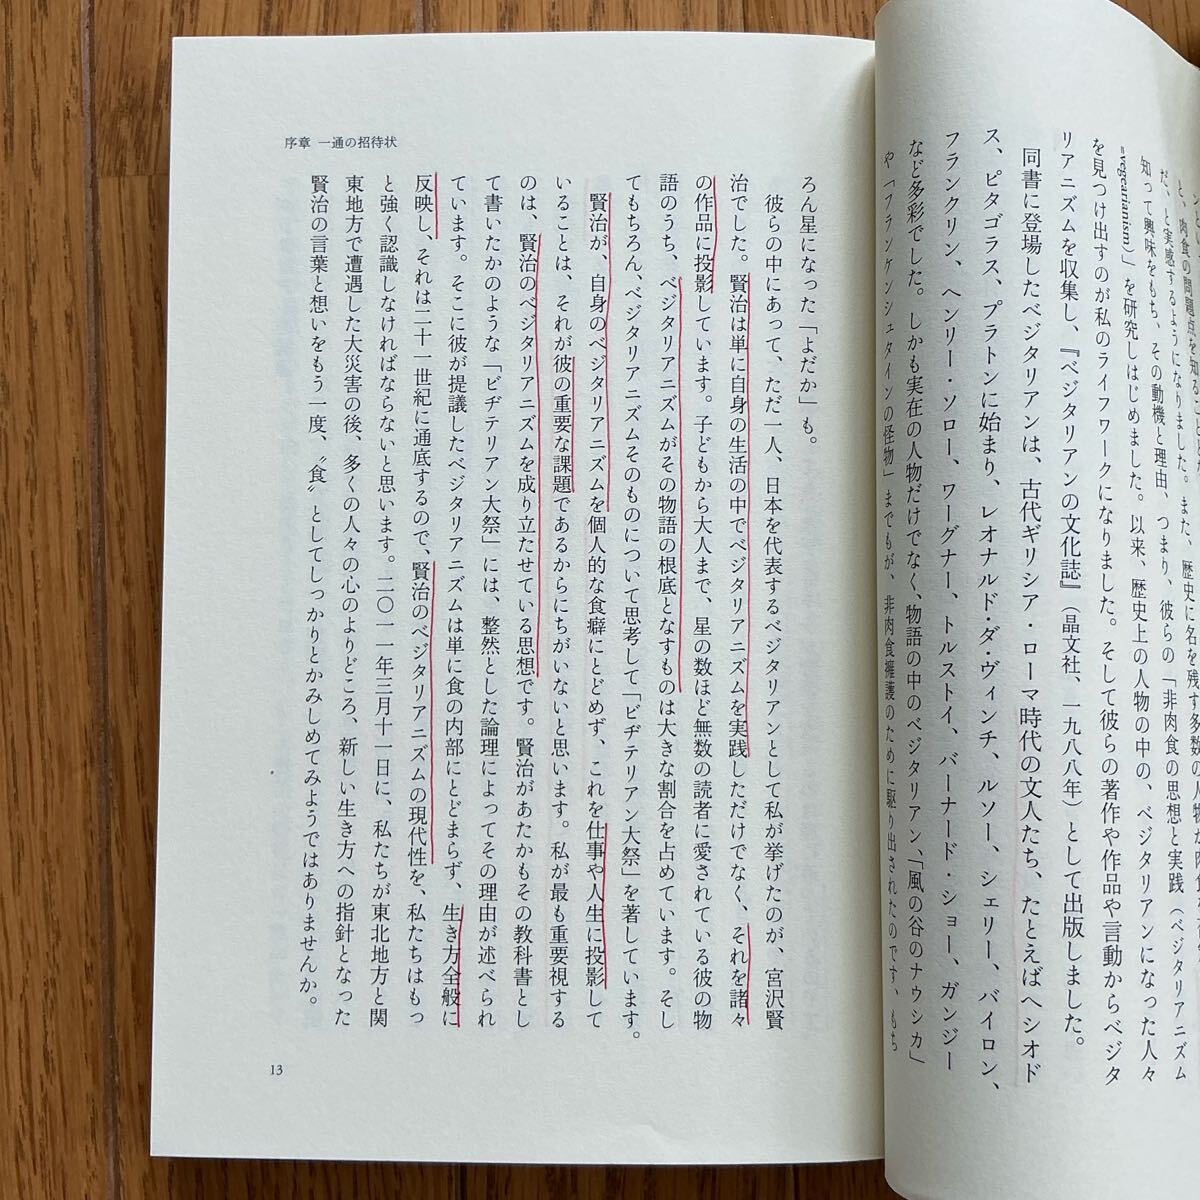 と、肉食の問題点を知る
だ、と実感するようになりました。また、歴史に名を残す多数の人物が肉食
知って興味をもち、その動機と理由、つまり、彼らの「非肉食の思想と実践（ベジタリアニズム
=vegetarianism）」を研究しはじめました。以来、歴史上の人物の中の、ベジタリアンになった人々
を見つけ出すのが私のライフワークになりました。そして彼らの著作や作品や言動からベジタ
リアニズムを収集し、『ベジタリアンの文化誌』（晶文社、一九八八年）として出版しました。
同書に登場したベジタリアンは、古代ギリシア・ローマ時代の文人たち、たとえばヘシオド
ス、ピタゴラス、プラトンに始まり、レオナルド・ダ・ヴィンチ、ルソー、シェリー、バイロン、
フランクリン、ヘンリー・ソロー、ワーグナー、トルストイ、バーナード・ショー、ガンジー
など多彩でした。しかも実在の人物だけでなく、物語の中のベジタリアン、「風の谷のナウシカ」
や「フランケンシュタインの怪物」までもが、非肉食擁護のために駆り出されたのです、もち
序章 一通の招待状
ろん星になった「よだか」も。
彼らの中にあって、ただ一人、日本を代表するベジタリアンとして私が挙げたのが、宮沢賢
治でした。賢治は単に自身の生活の中でベジタリアニズムを実践しただけでなく、それを諸々
の作品に投影しています。子どもから大人まで、星の数ほど無数の読者に愛されている彼の物
語のうち、ベジタリアニズムがその物語の根底となすものは大きな割合を占めています。そし
てもちろん、ベジタリアニズムそのものについて思考して「ビヂテリアン大祭」を著しています。
賢治が、自身のベジタリアニズムを個人的な食癖にとどめず、これを仕事や人生に投影して
いることは、それが彼の重要な課題であるからにちがいないと思います。私が最も重要視する
のは、賢治のベジタリアニズムを成り立たせている思想です。賢治があたかもその教科書とし
て書いたかのような「ビヂテリアン大祭」には、整然とした論理によってその理由が述べられ
ています。そこに彼が提議したベジタリアニズムは単に食の内部にとどまらず、生き方全般に
反映し、それは二十一世紀に通底するので、賢治のベジタリアニズムの現代性を、私たちはもっ
と強く認識しなければならないと思います。二〇一一年三月十一日に、私たちが東北地方と関
東地方で遭遇した大災害の後、多くの人々の心のよりどころ、新しい生き方への指針となった
賢治の言葉と想いをもう一度、〝食〟としてしっかりとかみしめてみようではありませんか。
13